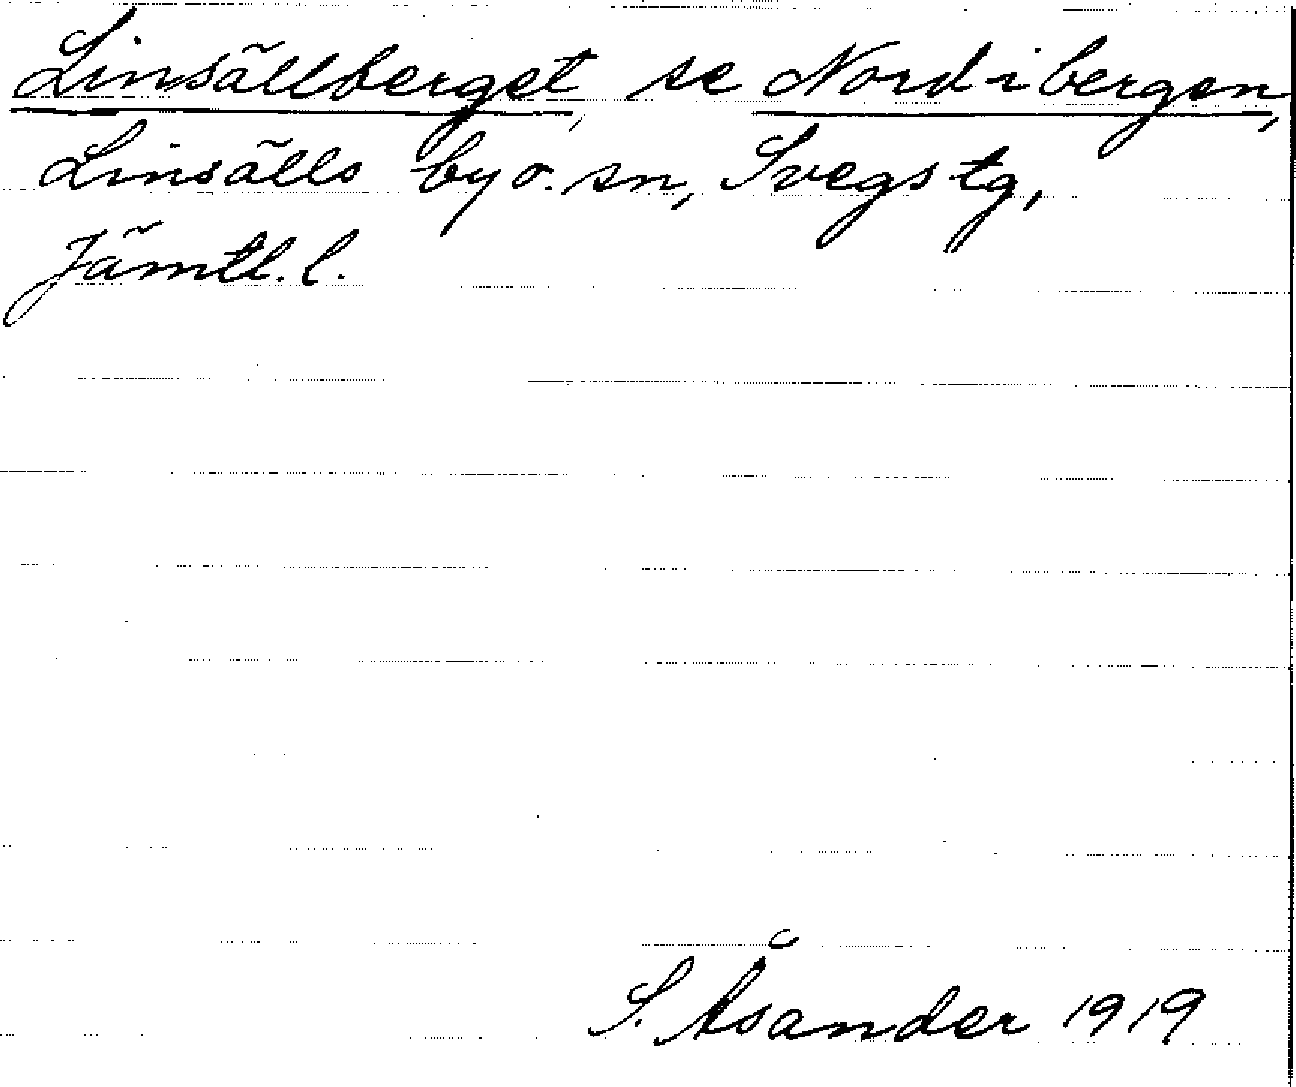 Linsällberget, se Nord-i bergen,
Linsälls by o. sn, Svegs tg,
Jämtl. l.
S. Åsander 1919